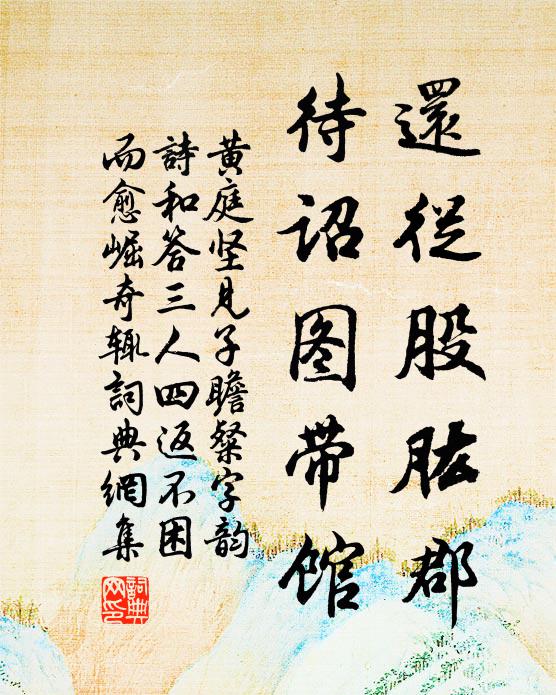 還從股肱郡
待诏图带馆
黄庭坚見子瞻粲字韵
詩和答三人四返不困
而愈崛奇辄詞典網集
詞典
网印